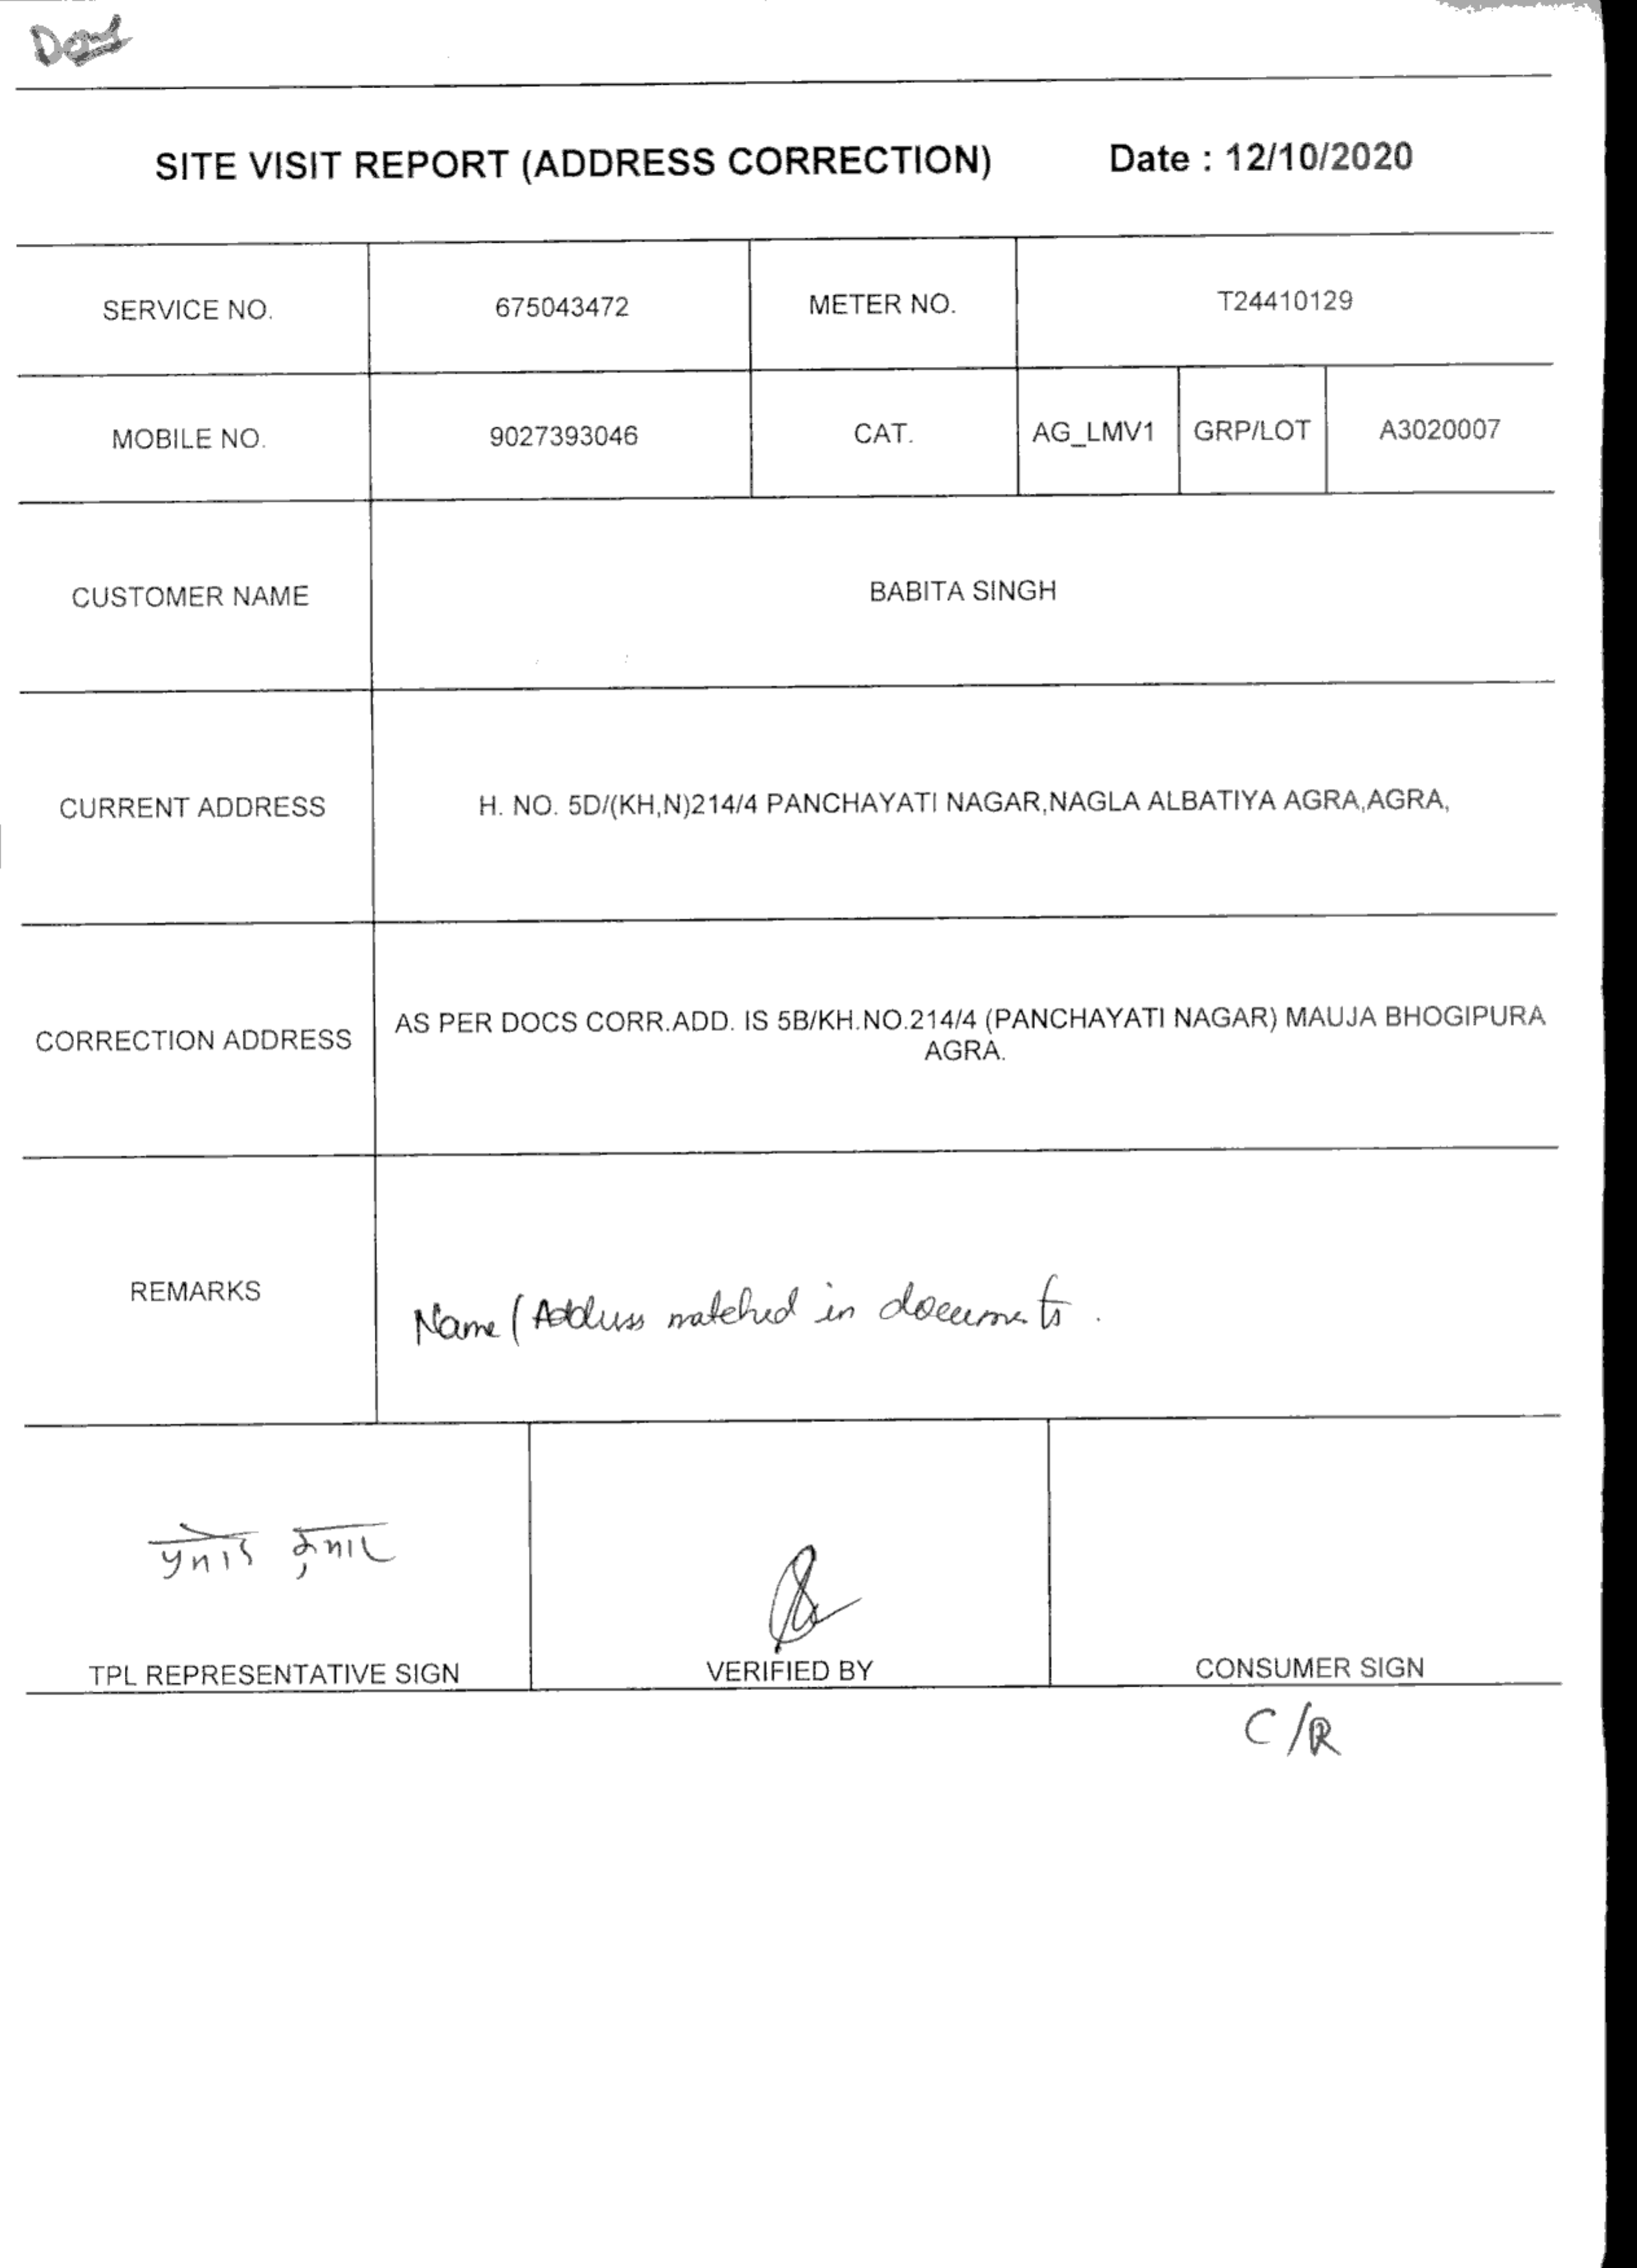 SITE VISIT REPORT (ADDRESS CORRECTION) Date : 12/10/2020
SERVICE NO. 675043472 METER NO. T24410129
MOBILE NO. 9027393046 CAT. AG_LMV1 GRP/LOT A3020007
CUSTOMER NAME BABITA SINGH
CURRENT ADDRESS H. NO. 5D/(KH,N)214/4 PANCHAYATI NAGAR,NAGLA ALBATIYA AGRA,AGRA,
CORRECTION ADDRESS AS PER DOCS CORR.ADD. IS 5B/KH.NO.214/4 (PANCHAYATI NAGAR) MAUJA BHOGIPURA
AGRA.
REMARKS
Name / Address matched in documents.
कुमार
TPL REPRESENTATIVE SIGN VERIFIED BY CONSUMER SIGN
C/R